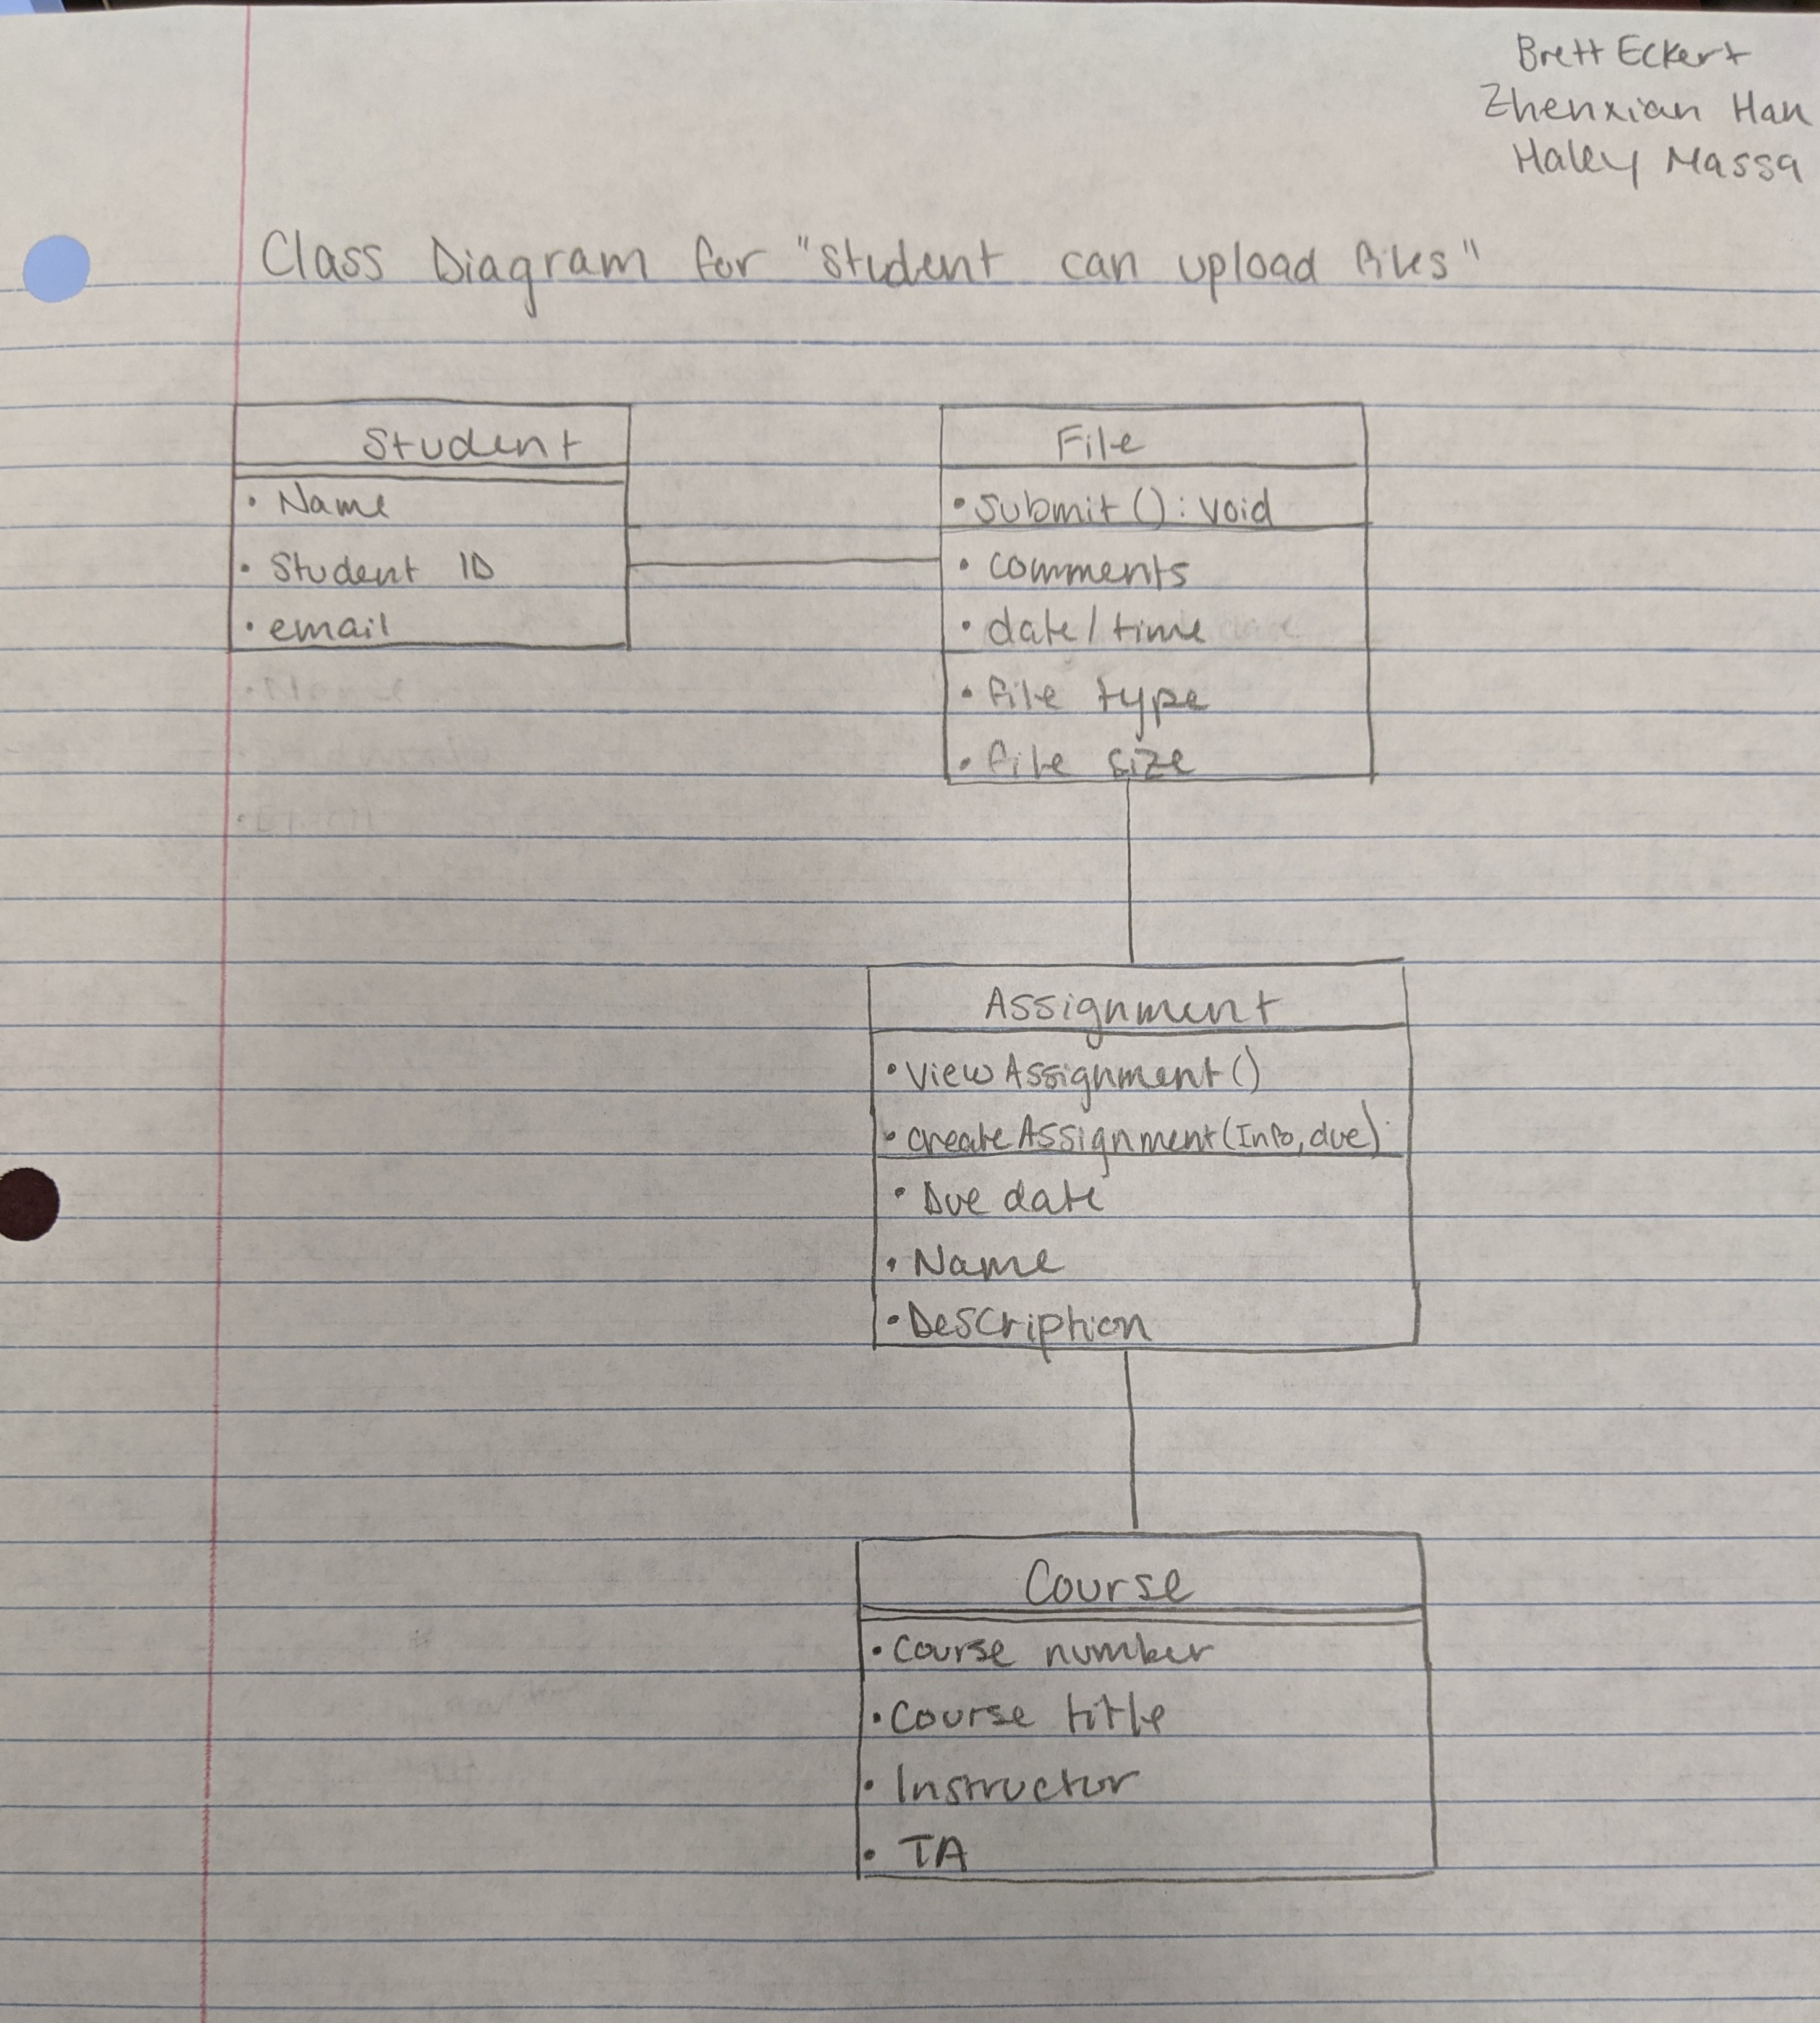 Brett Eckert
Zhenxian Han
Haley Massa
Class Diagram for "Student can upload files"
Student
• Name
• Student ID
• email
File
• Submit() : void
• comments
• date/time
• file type
• file size
Assignment
• viewAssignment()
• createAssignment(Info, due)
• Due date
• Name
• Description
Course
• Course number
• Course title
• Instructor
• TA